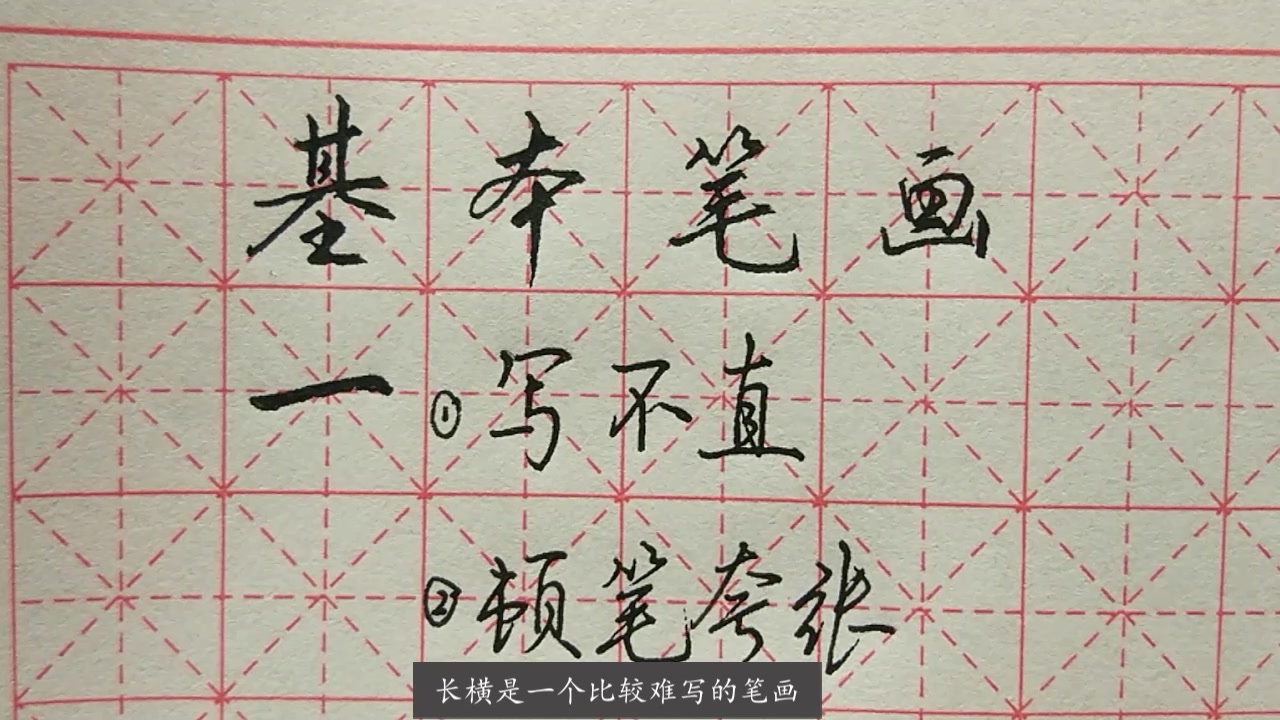 基本笔画
一①写不直
②顿笔夸张
长横是一个比较难写的笔画